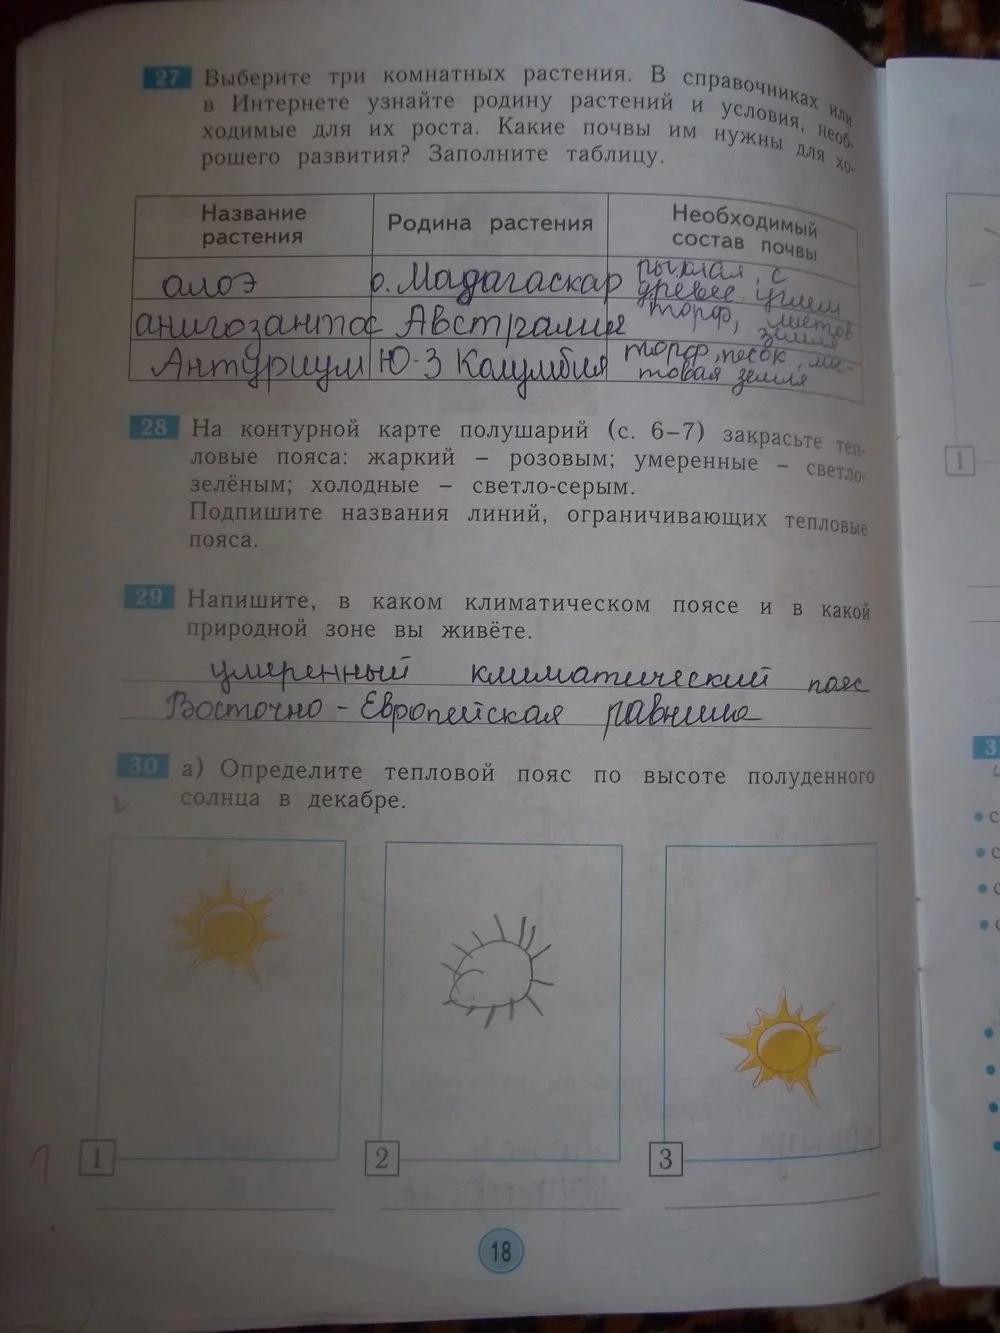 27 Выберите три комнатных растения. В справочниках или
в Интернете узнайте родину растений и условия, необ-
ходимые для их роста. Какие почвы им нужны для хо-
рошего развития? Заполните таблицу.
Название растения
Родина растения
Необходимый состав почвы
алоэ
о. Мадагаскар
рыхлая, с
древес. углем
анигозантос
Австралия
торф, листов
земля
Антуриум
Ю-З Калумбия
торф, песок, лис-
товая земля
28 На контурной карте полушарий (с. 6–7) закрасьте теп-
ловые пояса: жаркий – розовым; умеренные – светло-
зелёным; холодные – светло-серым.
Подпишите названия линий, ограничивающих тепловые
пояса.
29 Напишите, в каком климатическом поясе и в какой
природной зоне вы живёте.
умеренный климатический пояс
Восточно-Европейская равнина
30 а) Определите тепловой пояс по высоте полуденного
солнца в декабре.
1
2
3
18
1
3